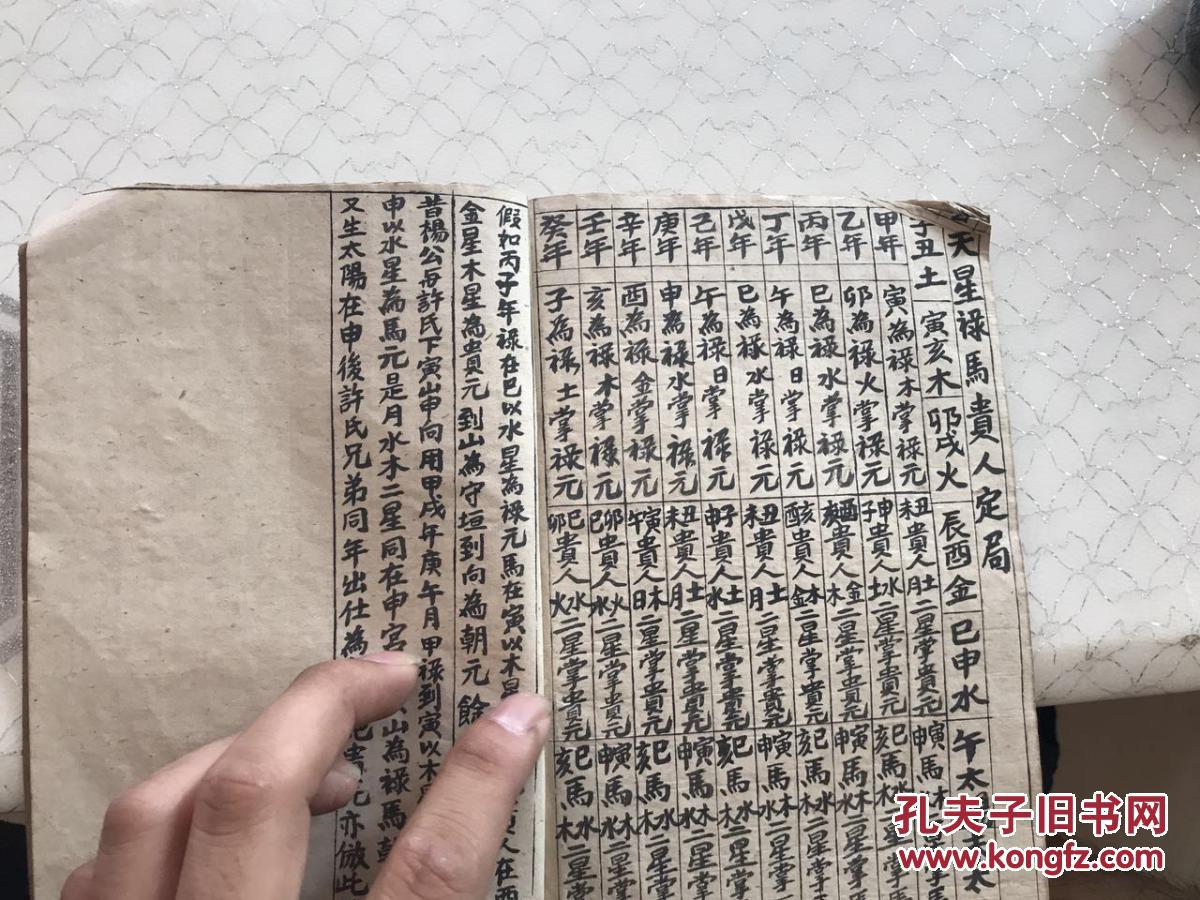 天星祿馬貴人定局
子丑土 寅亥木 卯戌火 辰酉金 巳申水 午太
甲年 寅為祿木掌祿元 丑未貴人土月二星掌貴元 寅申馬
乙年 卯為祿火掌祿元 申子貴人水土二星掌貴元 巳亥馬水木
丙年 巳為祿水掌祿元 酉亥貴人金木二星掌貴元 寅申馬木水二星掌
丁年 午為祿日掌祿元 亥酉貴人木金二星掌貴元 巳亥馬水木二星掌
戊年 巳為祿水掌祿元 丑未貴人土月二星掌貴元 寅申馬木水二星掌
己年 午為祿日掌祿元 子申貴人土水二星掌貴元 巳亥馬水木二星掌
庚年 申為祿水掌祿元 丑未貴人土月二星掌貴元 寅申馬木水二星掌
辛年 酉為祿金掌祿元 寅午貴人木日二星掌貴元 巳亥馬水木二星掌
壬年 亥為祿木掌祿元 卯巳貴人火水二星掌貴元 寅申馬木水二星掌
癸年 子為祿土掌祿元 巳卯貴人水火二星掌貴元 巳亥馬水木二星掌
假如丙子年祿在巳以水星為祿元馬在寅以木星 人在酉
金星木星為貴元到山為守垣到向為朝元餘
昔楊公與許氏下寅山申向用甲戌年庚午月甲祿到寅以木
申以水星為馬元是月水木二星同在申宮 山為祿馬
又生太陽在申後許氏兄弟同年出仕為 亦倣此
孔夫子旧书网
www.kongfz.com